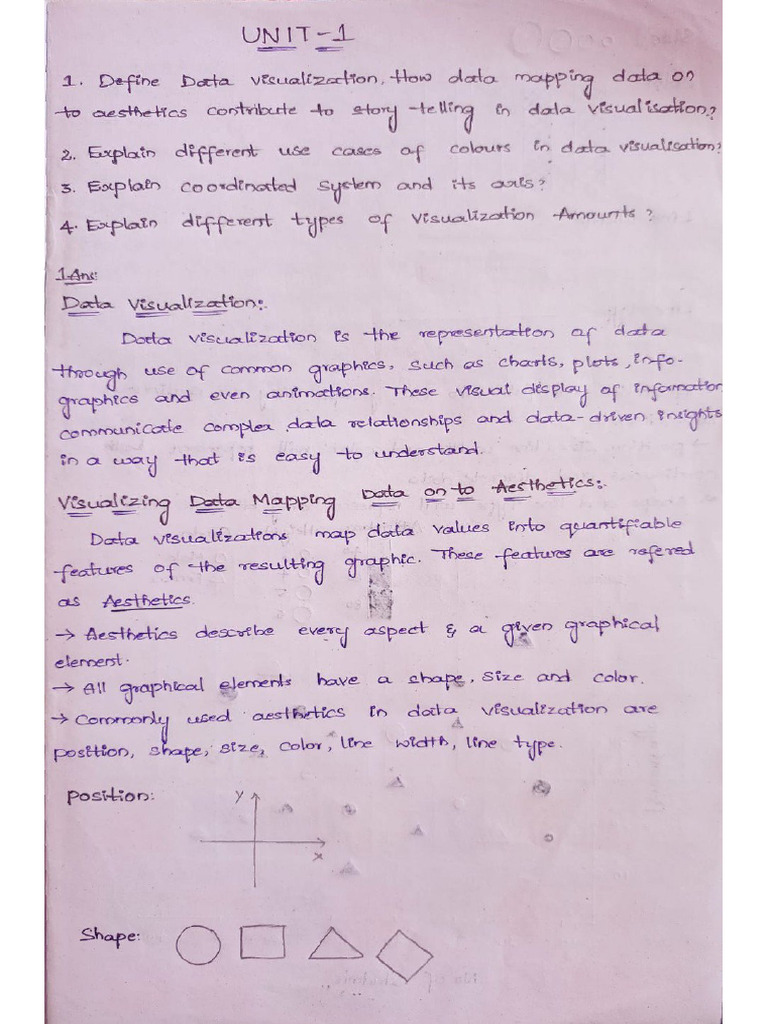 UNIT-1
1. Define Data visualization, How data mapping data on
to aesthetics contribute to story-telling in data visualisation?
2. Explain different use cases of colours in data visualisation?
3. Explain coordinated system and its axis?
4. Explain different types of visualization Amounts?
1Ans:
Data Visualization:.
Data visualization is the representation of data
through use of common graphics, such as charts, plots, info-
graphics and even animations. These visual display of information
communicate complex data relationships and data-driven insights
in a way that is easy to understand.
Visualizing Data Mapping Data on to Aesthetics:.
Data visualizations map data values into quantifiable
features of the resulting graphic. These features are refered
as Aesthetics.
→ Aesthetics describe every aspect & a given graphical
element.
→ All graphical elements have a shape, size and color.
→ Commonly used aesthetics in data visualization are
position, shape, size, color, line width, line type.
Position:
Y
X
Shape: